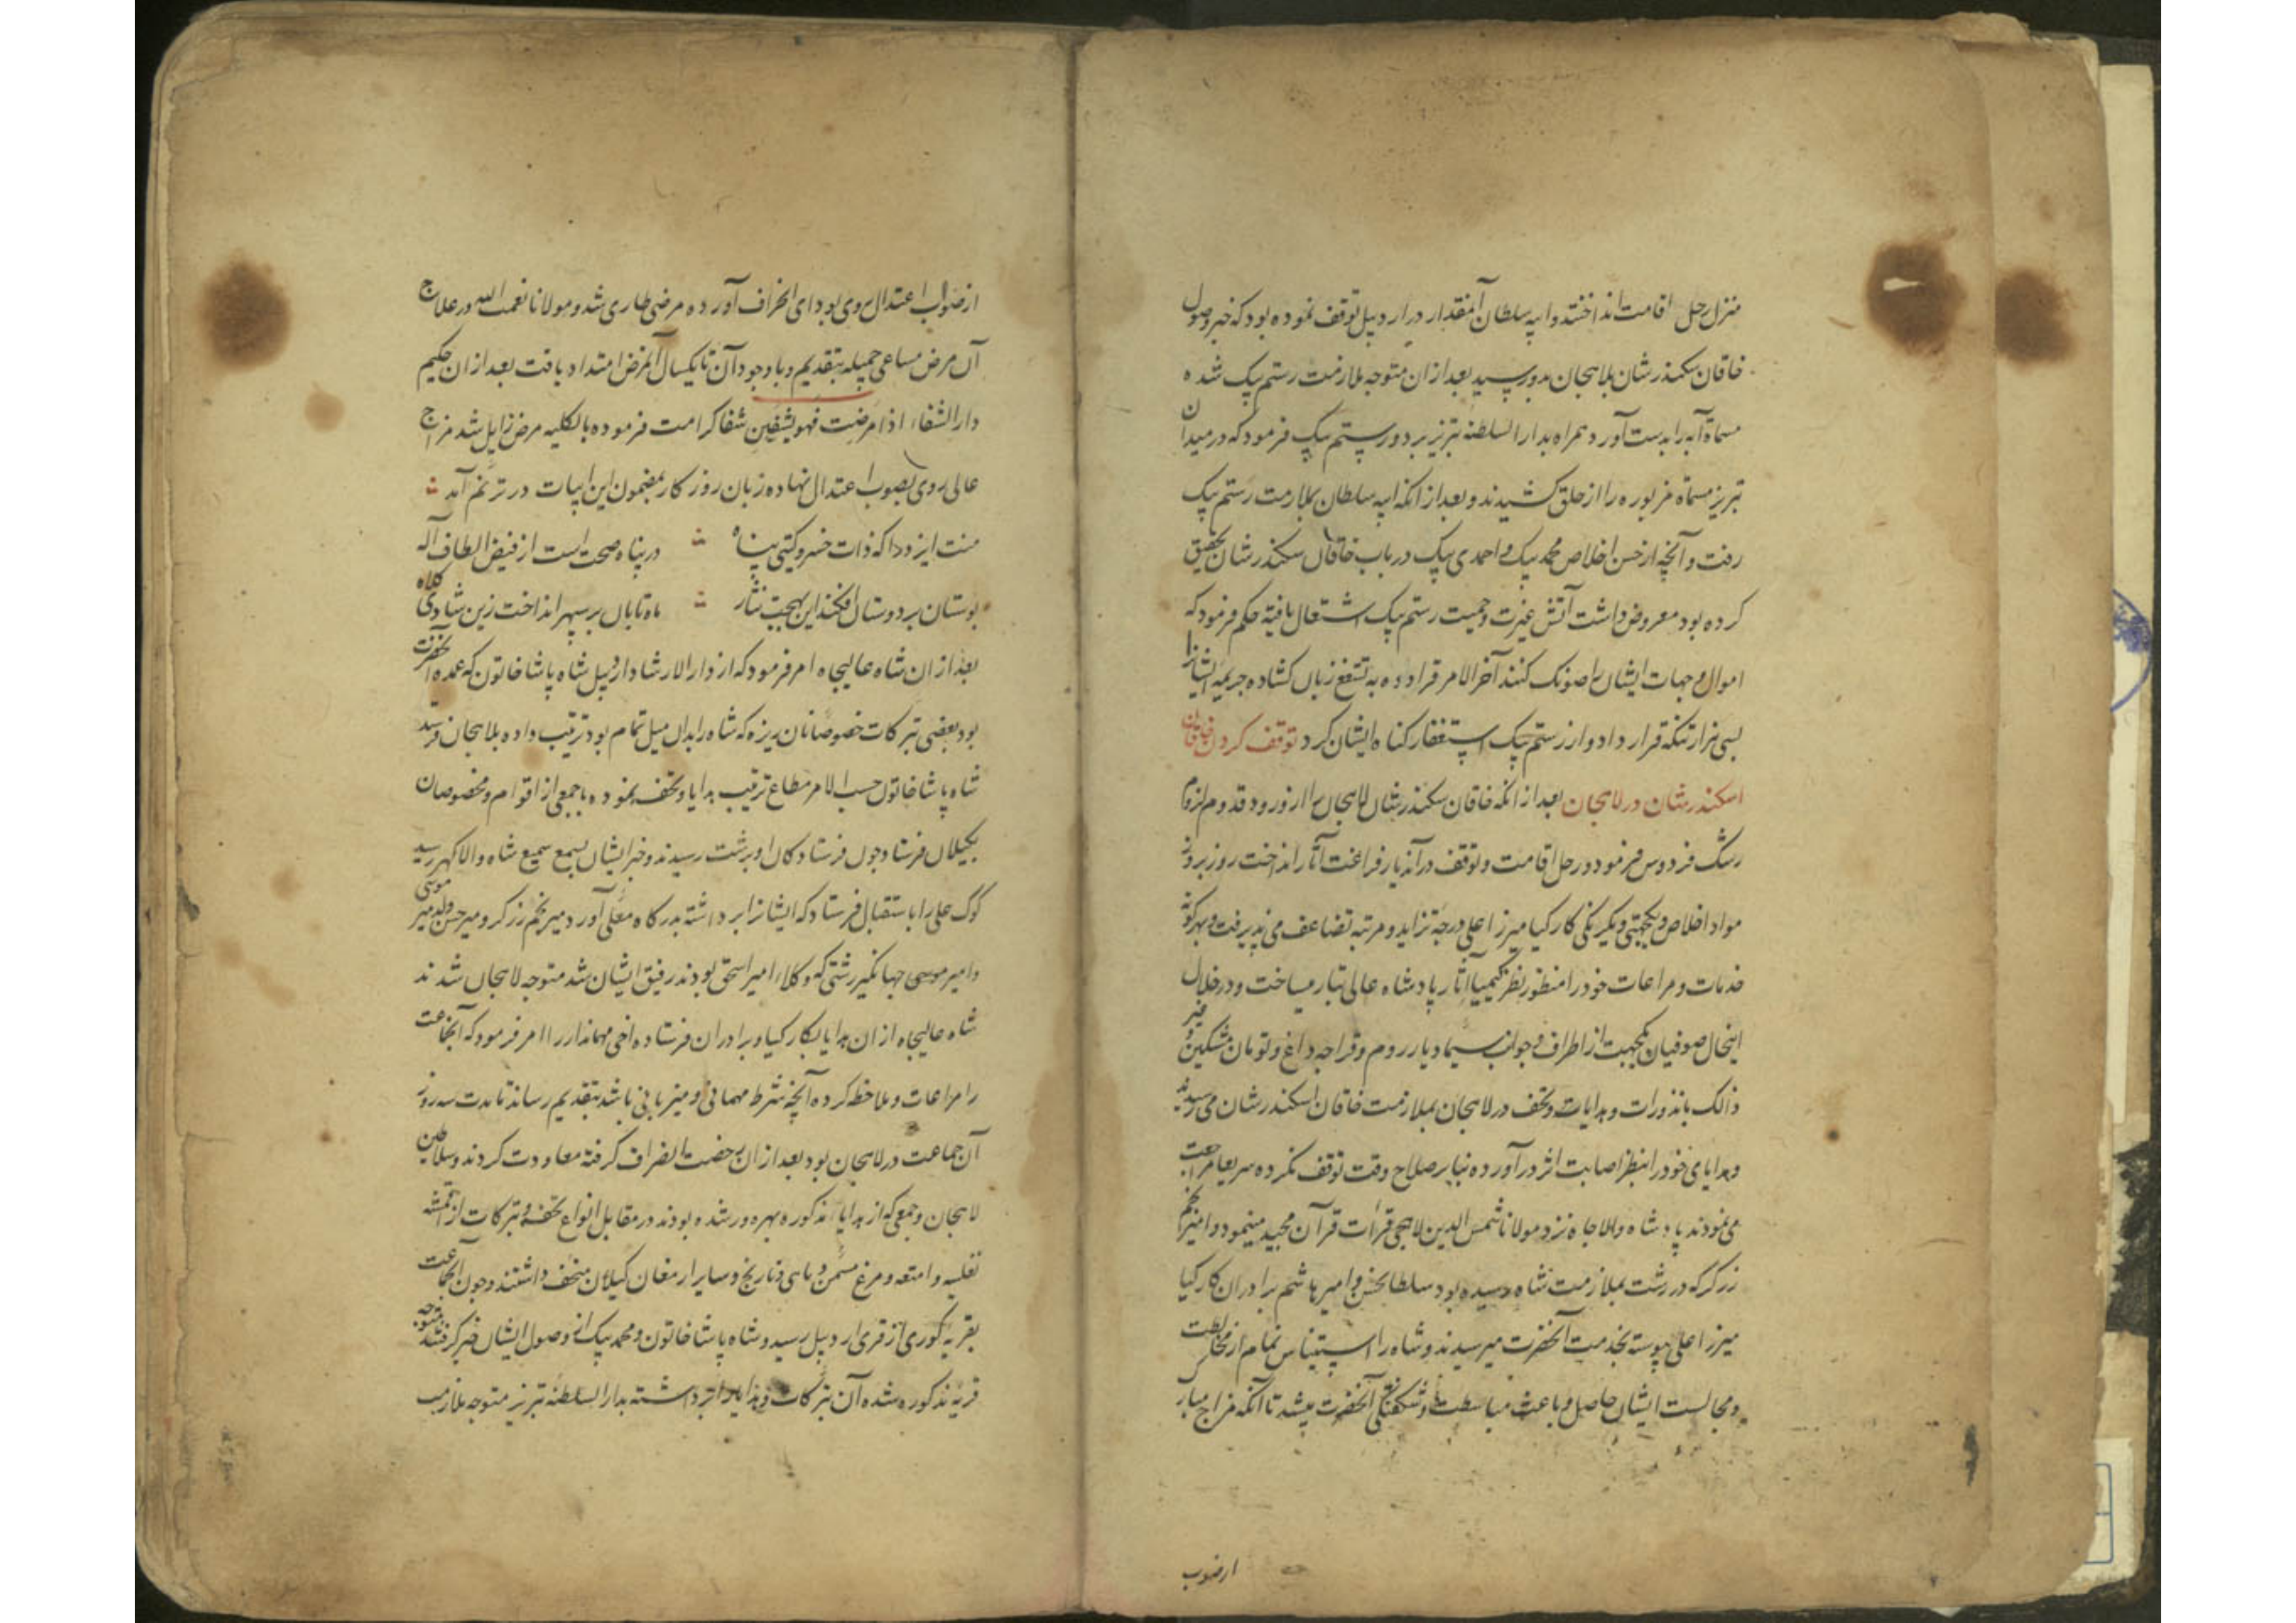 منزل رحل اقامت انداختند و ابیه سلطان آنمقدار در اردبیل توقف نموده بود که خبر وصول
خاقان سکندرشان بلاهجان بدو رسید بعد از ان متوجه ملازمت رستم بیک شده
مسماة آبه را بدست آورد همراه بدار السلطنه تبریز برد و رستم بیک فرمود که در میدان
تبریز مسماة مزبوره را از حلق کشیدند و بعد از انکه ابیه سلطان بملازمت رستم بیک
رفت و آنچه از حسن اخلاص محمد بیک و احمدی بیک در باب خاقان سکندرشان تحقیق
کرده بود معروض داشت آتش غیرت و حمیت رستم بیک اشتعال یافته حکم فرمود که
اموال و جهات ایشان را کنند آخر الامر قرا دده به تشفع زبان کشاده جریمه ایشانرا
بسی هزار تنکه قرار داد و از رستم بیک استغفار کناه ایشان کرد توقف کردن خاقان
اسکندرشان در لاهجان بعد از انکه خاقان سکندرشان لاهجان را از ورود قدوم
رشک فردوس فرمود و رحل اقامت و توقف در آندیار فراغت آثار انداخت روز بروز
مواد اخلاص و یکجهتی و یکرنکی کارکیا میرزا علی درجه تزاید و مرتبه تضاعف می پذیرفت و بهر کونه
خدمات و مراعات خود را منظور نظر کیمیا آثار پادشاه عالی تبار میساخت و در خلال
اینحال صوفیان یکجهت از اطراف و جوانب سیما دیار روم و قراجه داغ و تومان مشکین و غیر
ذالک با نذورات و هدایات و تحف در لاهجان بملازمت خاقان اسکندرشان می رسیدند
و هدایای خود را بنظر اصابت اثر در آورده بنابر صلاح وقت توقف نکرده سریعا مراجعت
می نمودند پادشاه والا جاه نزد مولانا شمس الدین لاهجی قرأت قرآن مجید مینمود و امیر نجم
زرکر که در رشت بملازمت شاه رسیده بود سلطانحسن و امیر هاشم برادران کارکیا
میرزا علی پیوسته بخدمت آنحضرت میرسیدند و شاه را استیناس تمام از مخالطت
و مجالست ایشان حاصل و باعث مباسطت و شکفتکی آنحضرت میشد تا آنکه مزاج مبار
ازصوب
از صوب اعتدال روی بوادی انحراف آورده مرضی طاری شد و مولانا نعمت الله در علاج
آن مرض مساعی جمیله بتقدیم و با وجود آن تا یکسال آنمرض امتداد یافت بعد از ان حکیم
دار الشفاء اذا مرضت فهو یشفین شفا کرامت فرموده بالکلیه مرض زایل شد مزاج
عالی روی بصوب اعتدال نهاده زبان روزکار بمضمون این ابیات در ترنم آمد
منت ایزد را که ذات خسرو کیتی پناه در پناه صحت است از فیض الطاف اله
بوستان بر دوستان افکند این بهجت نثار ماه تابان بر سپهر انداخت زین شادی کلاه
بعد از ان شاه عالیجاه امر فرمود که از دار الارشاد اردبیل شاه پاشا خاتون که عمه آنحضرت
بود بعضی تبرکات خصوصا نان ریزه که شاه را بدان میل تمام بود ترتیب داده بلاهجان فرستد
شاه پاشا خاتون حسب الامر مطاع ترتیب هدایا و تحف نموده با جمعی از اقوام و مخصوصان
بکیلان فرستاد چون فرستادکان او برشت رسیدند و خبر ایشان بسمع سمیع شاه والا کهر رسید
کوک علی را باستقبال فرستاد که ایشانرا برداشته بدرکاه معلی آورد میر نجم زرکر و میر حسن ولد میر موسی
و امیر موسی جهانکیر رشتی که وکلاء امیر اسحق بودند رفیق ایشان شد متوجه لاهجان شدند
شاه عالیجاه از ان هدایا بکارکیا و برادران فرستاده اخی مهماندار را امر فرمود که آنجماعت
را مراعات و ملاحظه کرده آنچه شرط مهمانی و میزبانی باشد بتقدیم رساند تا مدت سه روز
آن جماعت در لاهجان بود بعد از ان رخصت انصراف کرفته معاودت کردند و سلاطین
لاهجان و جمعی که از هدایا مذکوره بهره ور شده بودند در مقابل انواع تحف و تبرکات از اقمشه
نفلسیه و امتعه و مرغ مسمن و ماهی و نارنج و سایر ارمغان کیلان متحف داشتند و چون آنجماعت
بقریه کوری از قری اردبیل رسید و شاه پاشا خاتون و محمد بیک از وصول ایشان خبر کرفتند متوجه
قریه مذکوره شده آن تبرکات و هدایا را برداشته بدار السلطنه تبریز متوجه ملازمت